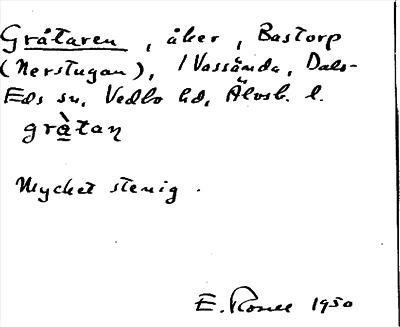 Gråtaren, åker, Bastorp
(Nerstugan), / Vassända, Dals-
Eds sn, Vedbo hd, Älvsb. l.
grà̱taɳ
Mycket stenig.
E. 1950